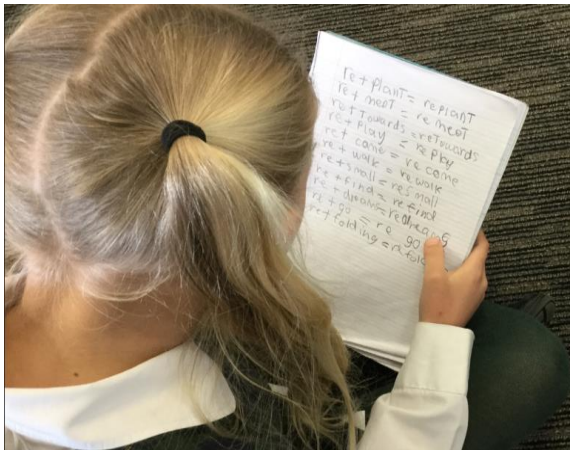 re + plant = replant
re + heat = reheat
re + towards = retowards
re + play = replay
re + came = recame
re + walk = rewalk
re + small = resmall
re + find = refind
re + dreams = redreams
re + go = re go
re + folding = refol